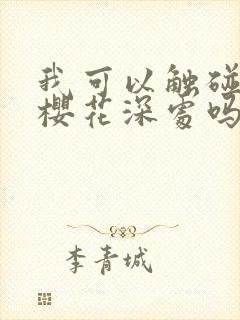 我可以触碰
樱花深处吗
李青城